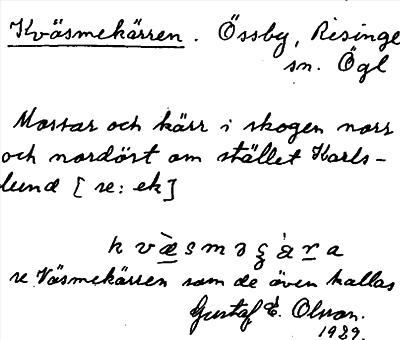 Kväsmekärren. Össby, Risinge
sn. Ögl
Mossar och kärr i skogen norr
och nordöst om stället Karls-
lund [se: ek]
k v æ s m ə ʂ ä r a
se Väsmekärren som de även kallas
Gustaf E. Olsson.
1929.